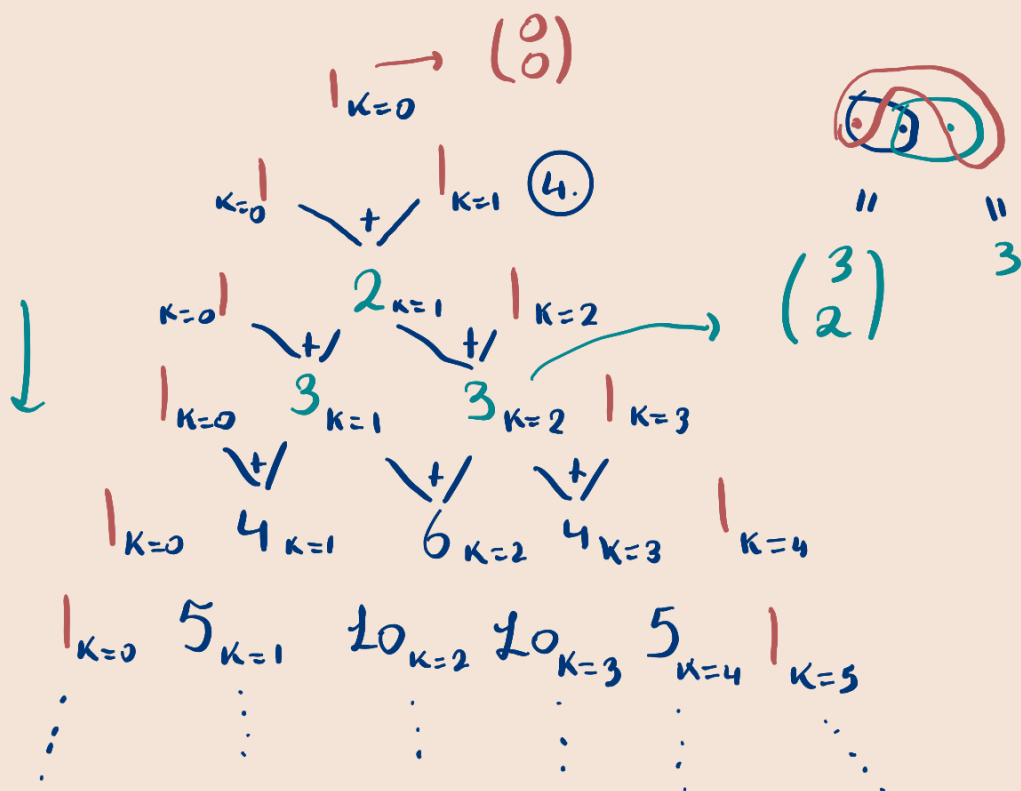 1 K=0 → (0 0)
1 K=0 + 1 K=1 4.
1 K=0 2 K=1 1 K=2
+ +
" "
(3 2) 3
1 K=0 3 K=1 3 K=2 1 K=3
+ + +
1 K=0 4 K=1 6 K=2 4 K=3 1 K=4
1 K=0 5 K=1 10 K=2 10 K=3 5 K=4 1 K=5